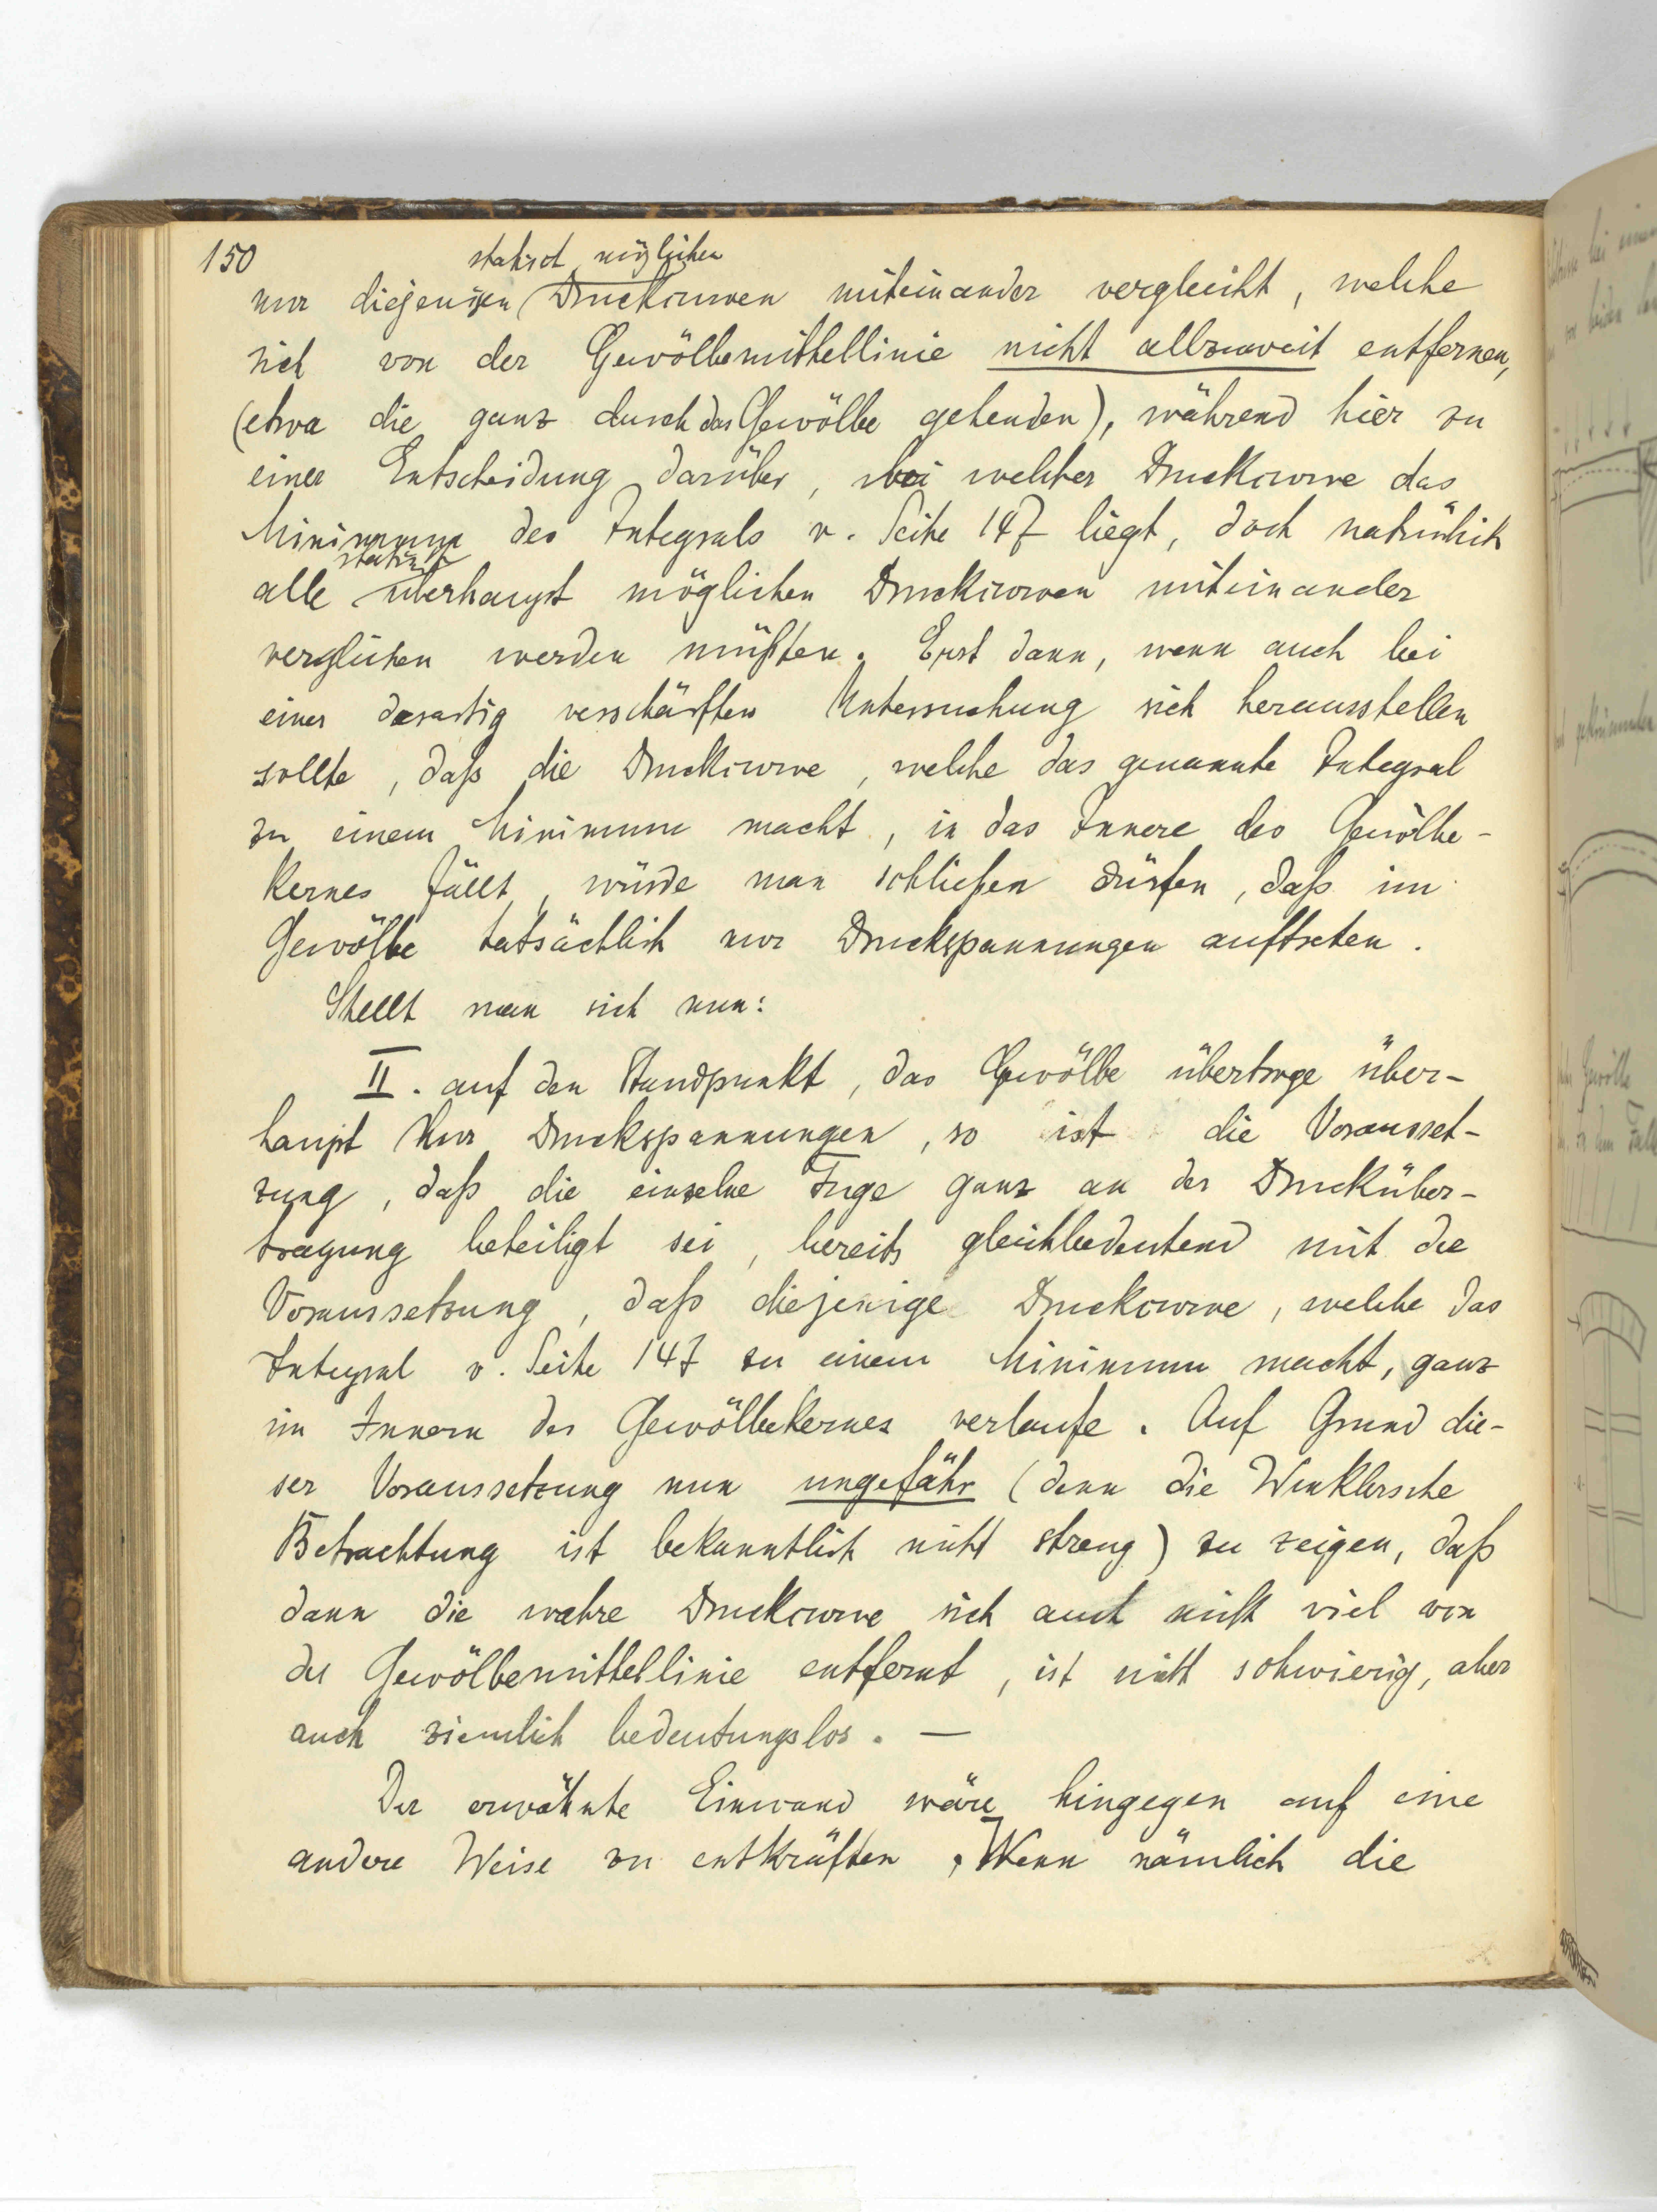 150
statisch möglichen
nur diejenigen Druckcurven miteinander vergleicht, welche
sich von der Gewölbemittellinie nicht allzuweit entfernen,
(etwa die ganz durch das Gewölbe gehenden), während hier zu
einer Entscheidung darüber, bei welcher Druckcurve das
Minimum des Integrals v. Seite 147 liegt, doch natürlich
statisch
alle überhaupt möglichen Druckcurven miteinander
verglichen werden müßten. Erst dann, wenn auch bei
einer derartig verschärften Untersuchung sich herausstellen
sollte, daß die Druckcurve, welche das genannte Integral
zu einem Minimum macht, in das Innere des Gewölbe-
kernes fällt, würde man schließen dürfen, daß im
Gewölbe tatsächlich nur Druckspannungen auftreten.
Stellt man sich nun:
II. auf den Standpunkt, das Gewölbe übertrage über-
haupt nur Druckspannungen, so ist die Vorausset-
zung, daß die einzelne Fuge ganz an der Drucküber-
tragung beteiligt sei, bereits gleichbedeutend mit der
Voraussetzung, daß diejenige Druckcurve, welche das
Integral v. Seite 147 zu einem Minimum macht, ganz
im Innern des Gewölbekernes verlaufe. Auf Grund die-
ser Voraussetzung nun ungefähr (denn die Winklersche
Betrachtung ist bekanntlich nicht streng) zu zeigen, daß
dann die wahre Druckcurve sich auch nicht viel von
der Gewölbemittellinie entfernt, ist nicht schwierig, aber
auch ziemlich bedeutungslos. —
Der erwähnte Einwand wäre hingegen auf eine
andere Weise zu entkräften. Wenn nämlich die